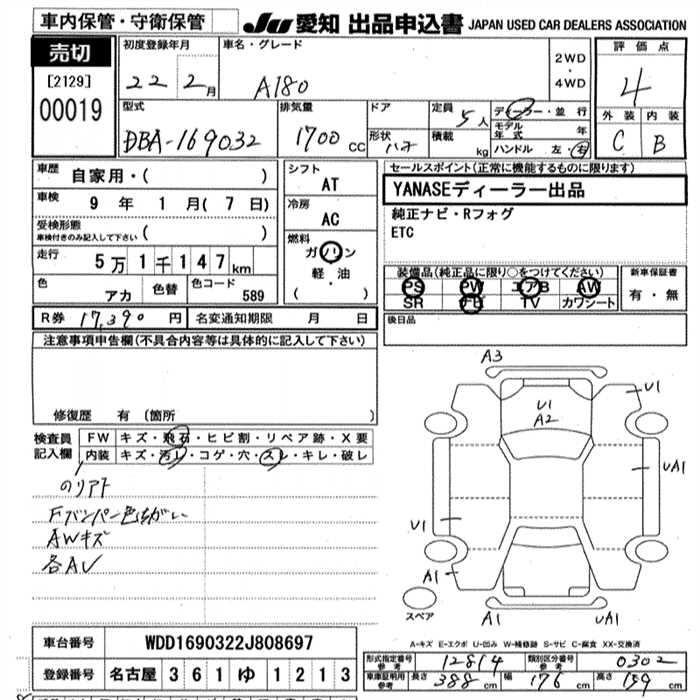 車内保管・守衛保管
JU 愛知 出品申込書 JAPAN USED CAR DEALERS ASSOCIATION
売切
[2129]
00019
初度登録年月
22 2月
車名・グレード
A180
2WD
・
4WD
評価点
4
外装 内装
C B
型式
DBA-169032
排気量
1700 CC
ドア
形状
ハッチ
定員
5人
積載
kg
ディーラー・並行
モデル年式 年
ハンドル 左・右
車歴
自家用・( )
車検
9年 1月(7日)
受検形態
車検付きのみ記入して下さい
( )
走行
5万1千147km
色
アカ
色替
色コード
589
シフト
AT
冷房
AC
燃料
ガソリン
軽・油
( )
セールスポイント(正常に機能するものに限ります)
YANASEディーラー出品
純正ナビ・Rフォグ
ETC
装備品(純正品に限り○をつけてください)
PS PW エアB AW
SR TV カワシート
新車保証書
有・無
R券 17,390円
名変通知期限 月 日
後日品
注意事項申告欄(不具合内容等は具体的に記入して下さい)
修復歴 有 (箇所 )
検査員
記入欄
FW キズ・飛石・ヒビ割・リペア跡・X要
内装 キズ・汚レ・コゲ・穴・スレ・キレ・破レ
のりアト
Fバンパー色ちがい
AWキズ
各AU
A3
U1
U1
A2
UA1
U1
A1
スペア
A1
UA1
A-キズ E-エクボ U-凹み W-補修跡 S-サビ C-腐食 XX-交換済
車台番号
WDD1690322J808697
登録番号
名古屋 361 ゆ 1213
形式指定番号
参考
12814
類別区分番号
参考
0302
車庫証明用
参考
長さ 388cm
幅 176cm
高さ 159cm